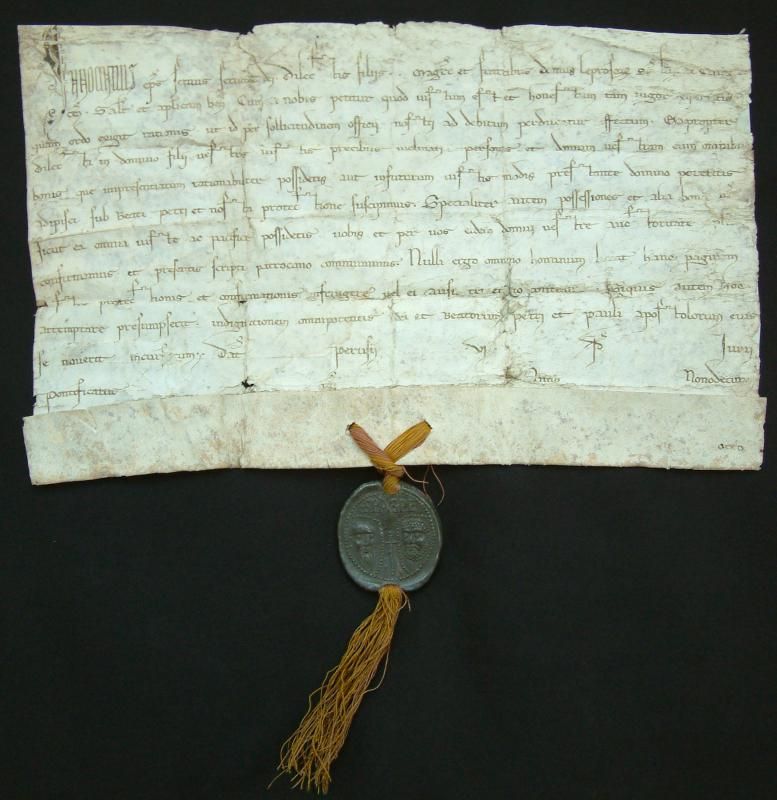 INNOCENTIUS ep̄s servus servorum dei Dilectis filiis .. Magr̄o et fratribus domus leprosorum
Salt̄ et aplicam ben̄. Cum a nobis petitur quod iustum est et honestum tam vigor equitatis
quam ordo exigit rationis ut id per sollicitudinem officii nostri ad debitum perducatur effectum. Eapropter
dilecti in domino filii vestris iustis precibus inclinati personas et domum vestram cum omnibus
bonis que impresentiarum rationabiliter possidetis aut infuturum iustis modis prestante domino poteritis
adipisci sub beati petri et nostra protectione suscipimus. Specialiter autem possessiones et alia bona
sicut ea omnia iuste ac pacifice possidetis vobis et per vos eidem domui vestre auctoritate
confirmamus et presentis scripti patrocinio communimus. Nulli ergo omnino hominum liceat hanc paginam
nostre protectionis et confirmationis infringere vel ei ausu temerario contraire. Siquis autem hoc
attemptare presumpserit indignationem omnipotentis dei et beatorum petri et pauli apostolorum eius
se noverit incursurum. Dat̄ perusii vi Junii
pontificatus Anno Nonodecimo